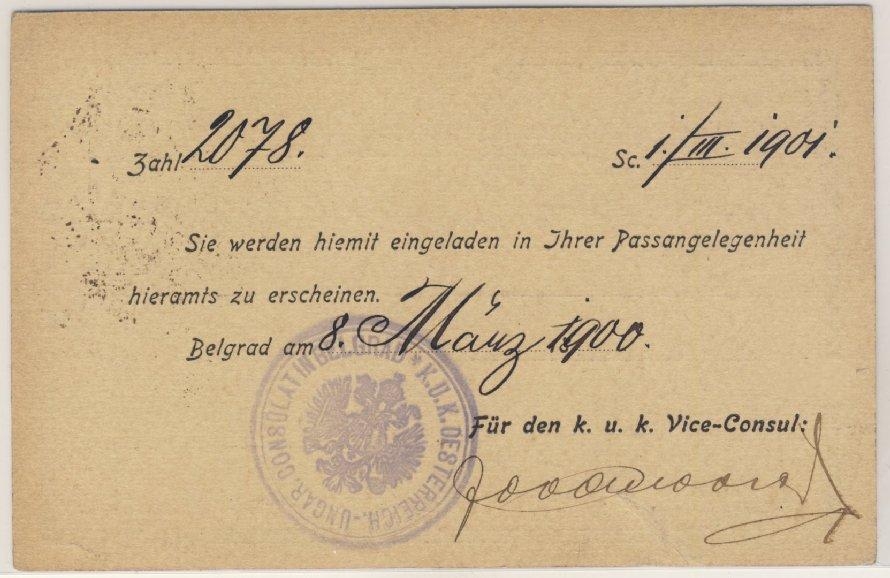 Zahl 2078. Sc. 1./III. 1901.
Sie werden hiemit eingeladen in Ihrer Passangelegenheit
hieramts zu erscheinen.
Belgrad am 8. März 1900.
K.U.K. OESTERREICH.-UNGAR. CONSULAT IN BELGRAD
Für den k. u. k. Vice-Consul: